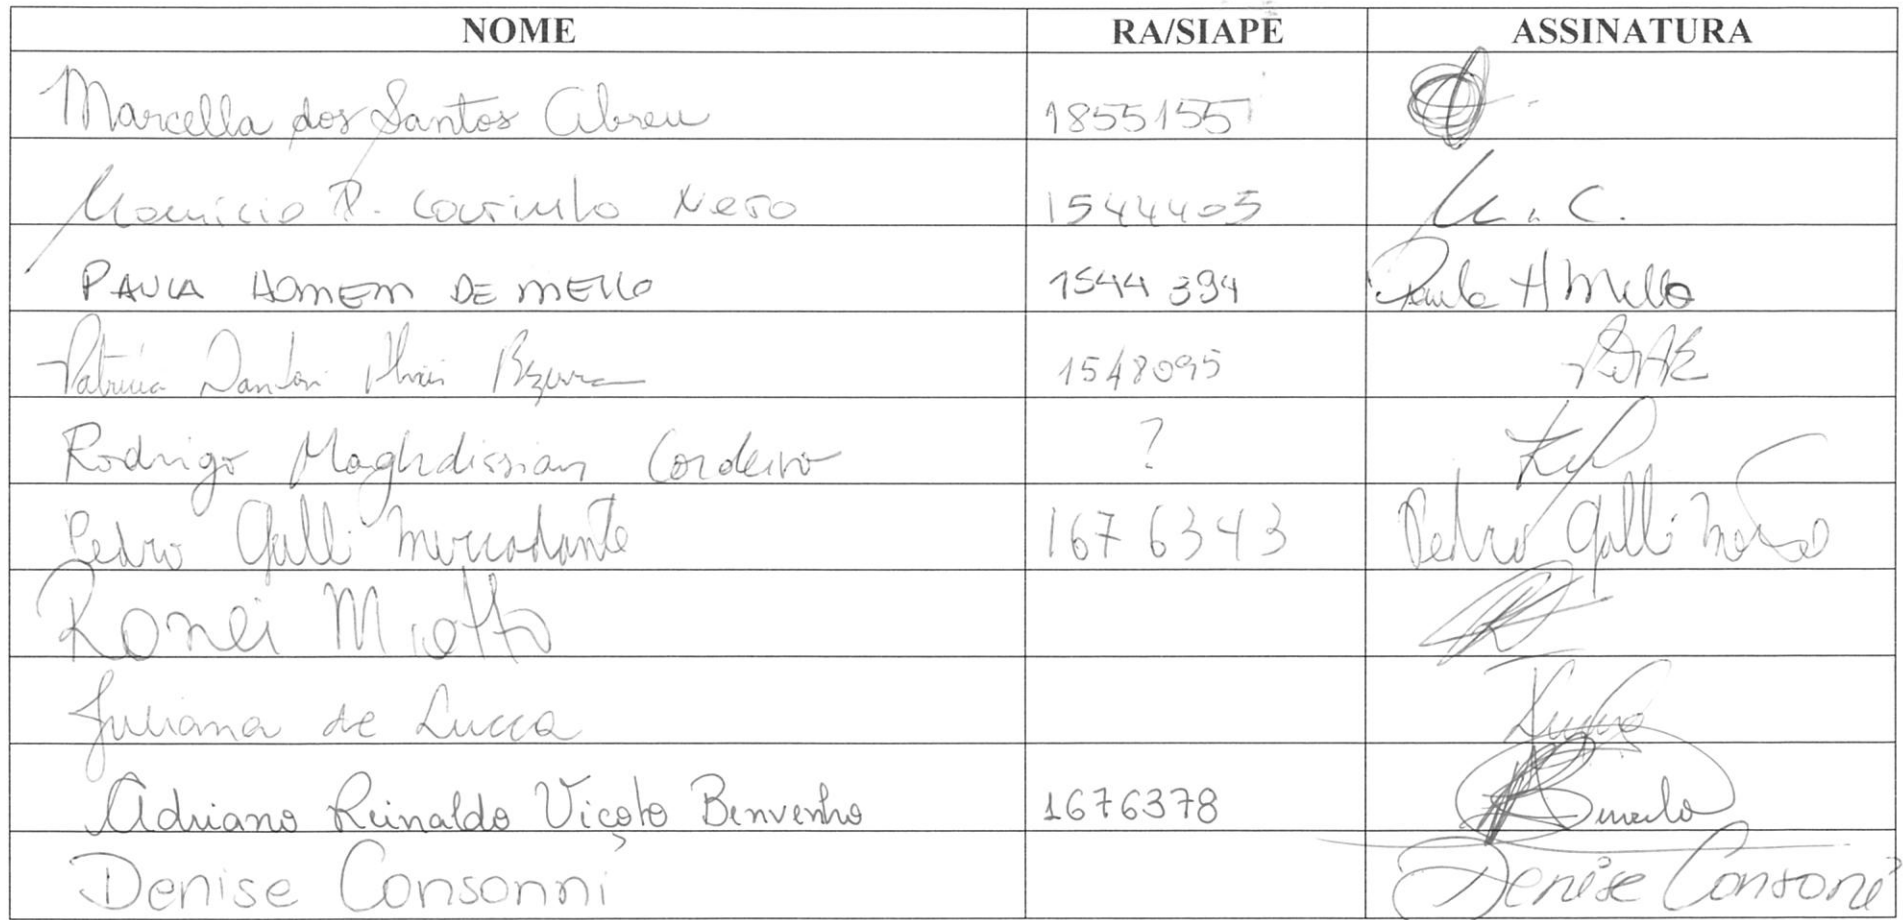 NOME RA/SIAPE ASSINATURA
Marcella dos Santos Abreu 18551551
Mauricio D. Coutinho Neto 1544405 M. C.
PAULA HOMEM DE MELLO 1544394 Paula H Mello
Patrícia Dantoni Alnis Bezerra 1548095
Rodrigo Maghdissian Cordeiro ?
Pedro Galli Mercadante 1676343 Pedro Galli
Ronei Miotto
Juliana de Lucca
Adriano Reinaldo Viçoto Benvenho 1676378
Denise Consonni Denise Consoni